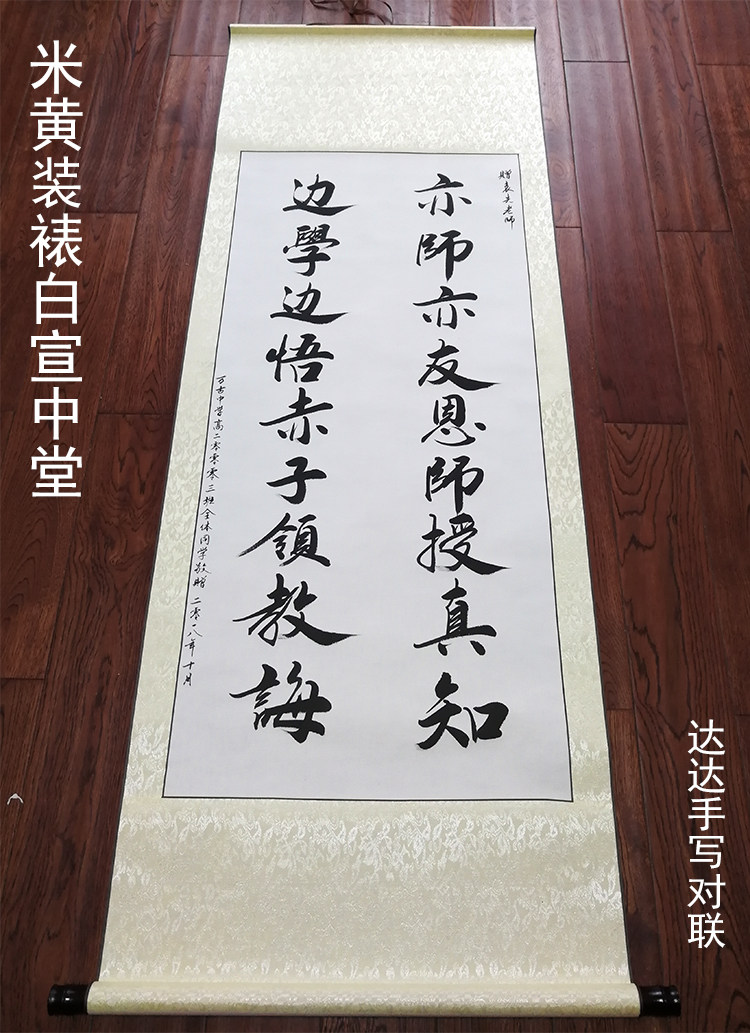 米黄装裱白宣中堂
赠袁夫老師
亦師亦友恩師授真知
边學边悟赤子領教誨
万古中学高二零零零三班全体同学敬贈 二零一八年十月
达达手写对联